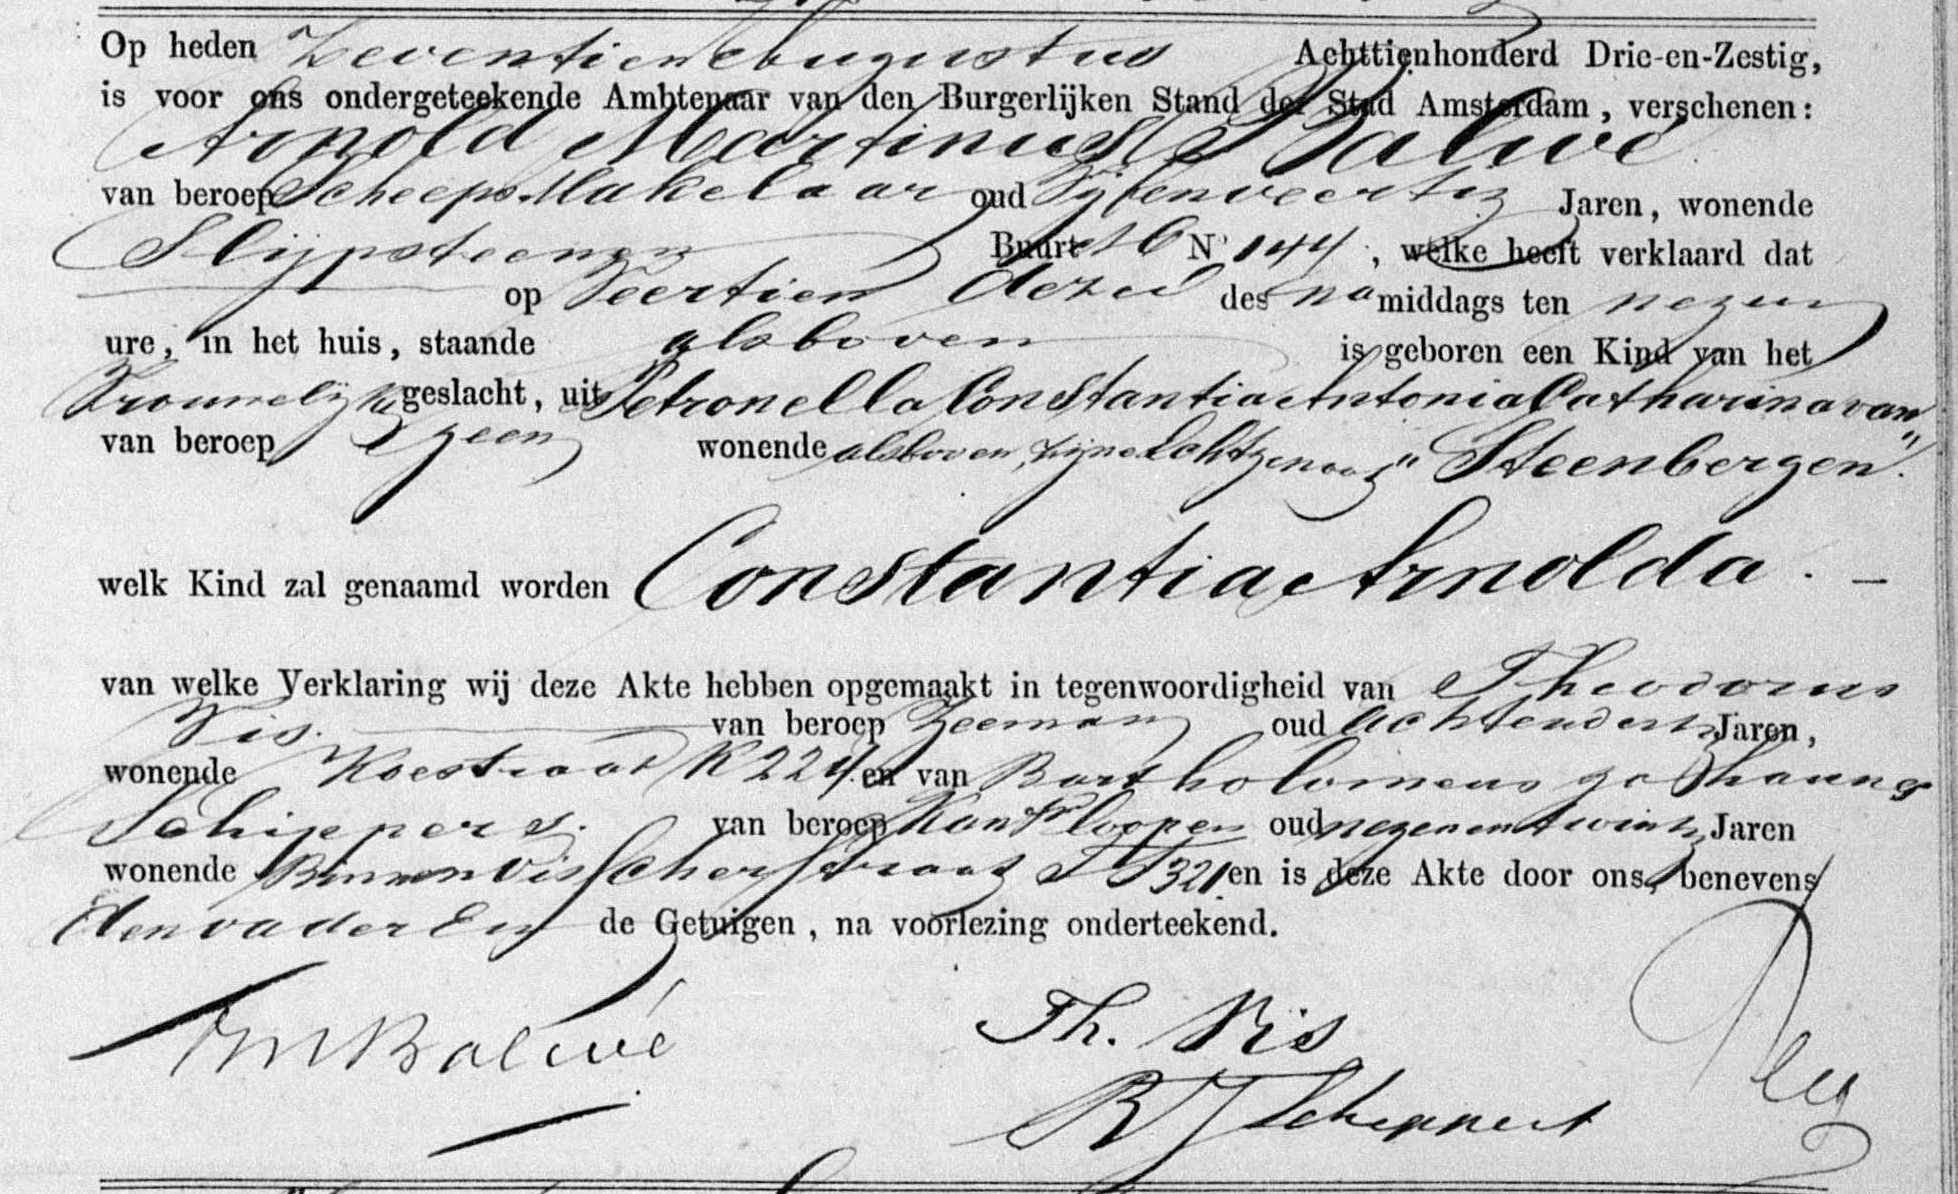 Op heden Zeventien Augustus Achttienhonderd Drie-en-Zestig,
is voor ons ondergeteekende Ambtenaar van den Burgerlijken Stand der Stad Amsterdam, verschenen:
Arnold Martinus Balwé
van beroep Scheeps Makelaar oud Vijfenveertig Jaren, wonende
Slijpsteenen Buurt 16 N° 144, welke heeft verklaard dat
op Veertien dezer des namiddags ten negen
ure, in het huis, staande alsboven is geboren een Kind van het
Vrouwelijk geslacht, uit Petronella Constantia Antonia Catharina van
van beroep geen wonende alsboven, zijne Echtgenoot " Steenbergen".
welk Kind zal genaamd worden Constantia Arnolda. —
van welke Verklaring wij deze Akte hebben opgemaakt in tegenwoordigheid van Theodorus
Vis. van beroep Zeeman oud achtendertig Jaren,
wonende Koestraat K 224 en van Bartholomeus Johannes
Schippers. van beroep Kantr looper oud negenentwintig Jaren
wonende Binnen Visscherstraat TT 321 en is deze Akte door ons, benevens
den vader En de Getuigen, na voorlezing onderteekend.
AM Balwé
Th. Vis
B J Schippers